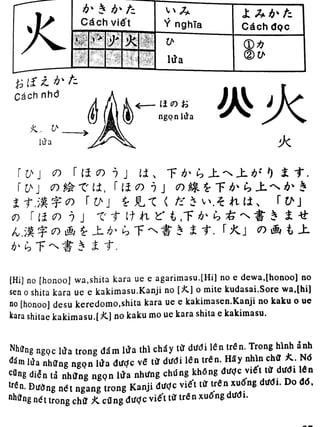 火
かきかた
Cách viết
いみ
Ý nghĩa
よみかた
Cách đọc
火 火
ひ
lửa
①カ
②ひ
おぼえかた
Cách nhớ
火、ひ
lửa
ほのお
ngọn lửa
火
火
「ひ」の「ほのう」は、下から上へ上がります.
「ひ」の絵では,「ほのう」の線を下から上へかき
ます.漢字の「ひ」を見てください.それは、「ひ」
の「ほのう」ですけれども,下から右へ書きませ
ん.漢字の画を上から下へ書きます.「火」の画も上
から下へ書きます.
[Hi] no [honoo] wa,shita kara ue e agarimasu.[Hi] no e dewa,[honoo] no
sen o shita kara ue e kakimasu.Kanji no [火] o mite kudasai.Sore wa,[hi]
no [honoo] desu keredomo,shita kara ue e kakimasen.Kanji no kaku o ue
kara shitae kakimasu.[火] no kaku mo ue kara shita e kakimasu.
Những ngọc lửa trong đám lửa thì cháy từ dưới lên trên. Trong hình ảnh
đám lửa những ngọn lửa được vẽ từ dưới lên trên. Hãy nhìn chữ 火. Nó
cũng diễn tả những ngọn lửa nhưng chúng không được viết từ dưới lên
trên. Đường nét ngang trong Kanji được viết từ trên xuống dưới. Do đó,
những nét trong chữ 火 cũng được viết từ trên xuống dưới.